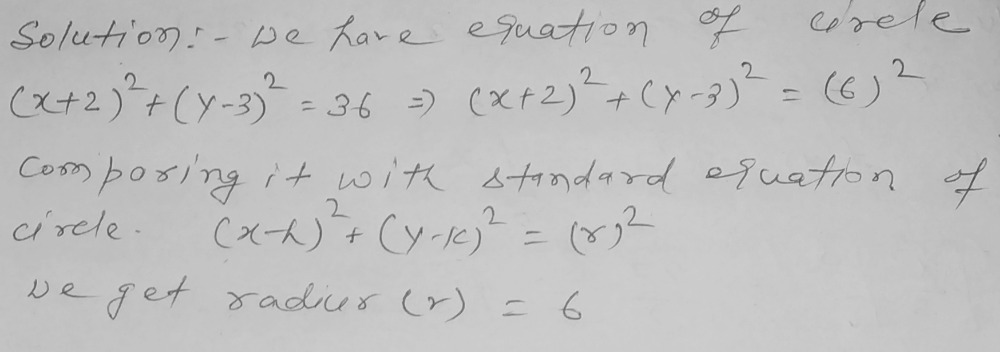 Solution:- We have equation of circle
(x+2)² + (y-3)² = 36 ⇒ (x+2)² + (y-3)² = (6)²
Comparing it with standard equation of
circle. (x-h)² + (y-k)² = (r)²
We get radius (r) = 6